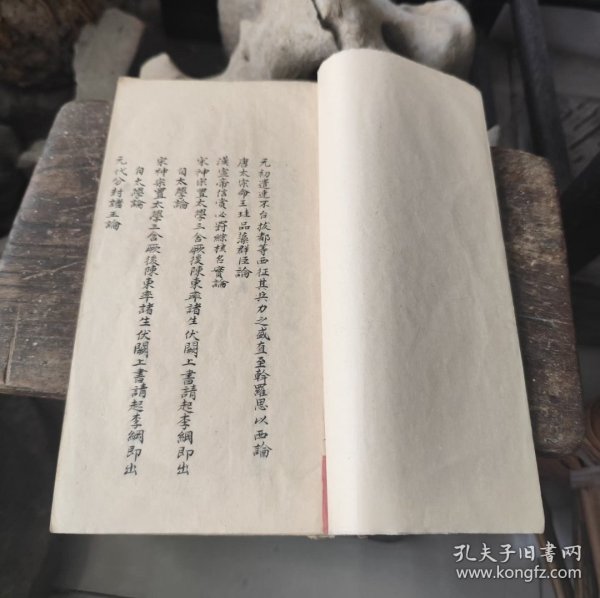 元初遣速不台拔都等西征其兵力之盛直至斡羅思以西論
唐太宗命王珪品藻群臣論
漢宣帝信賞必罰綜核名實論
宋神宗置太學三舍厥後陳東率諸生伏闕上書請起李綱即出
自太學論
宋神宗置太學三舍厥後陳東率諸生伏闕上書請起李綱即出
自太學論
元代分封諸王論
孔夫子旧书网
www.kongfz.com